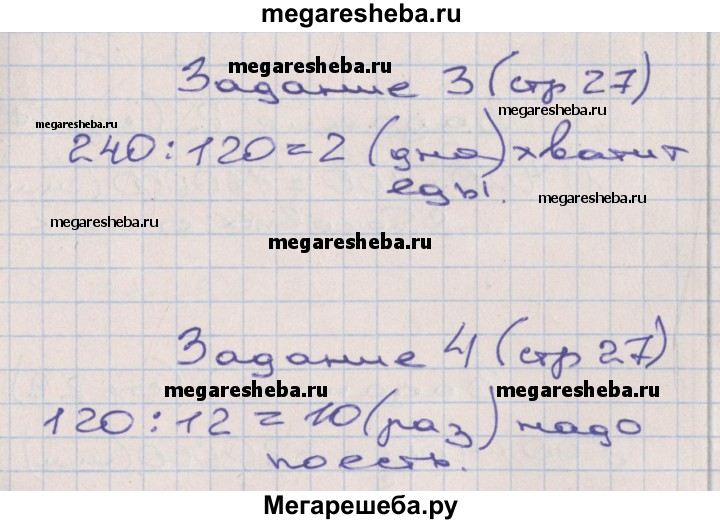 megaresheba.ru
megaresheba.ru
Задание 3 (стр 27)
megaresheba.ru
megaresheba.ru
240 : 120 = 2 (дна) хватит
еды.
megaresheba.ru
megaresheba.ru
megaresheba.ru
Задание 4 (стр 27)
megaresheba.ru
megaresheba.ru
120 : 12 = 10 (раз) надо
поесть.
Мегарешеба.ру